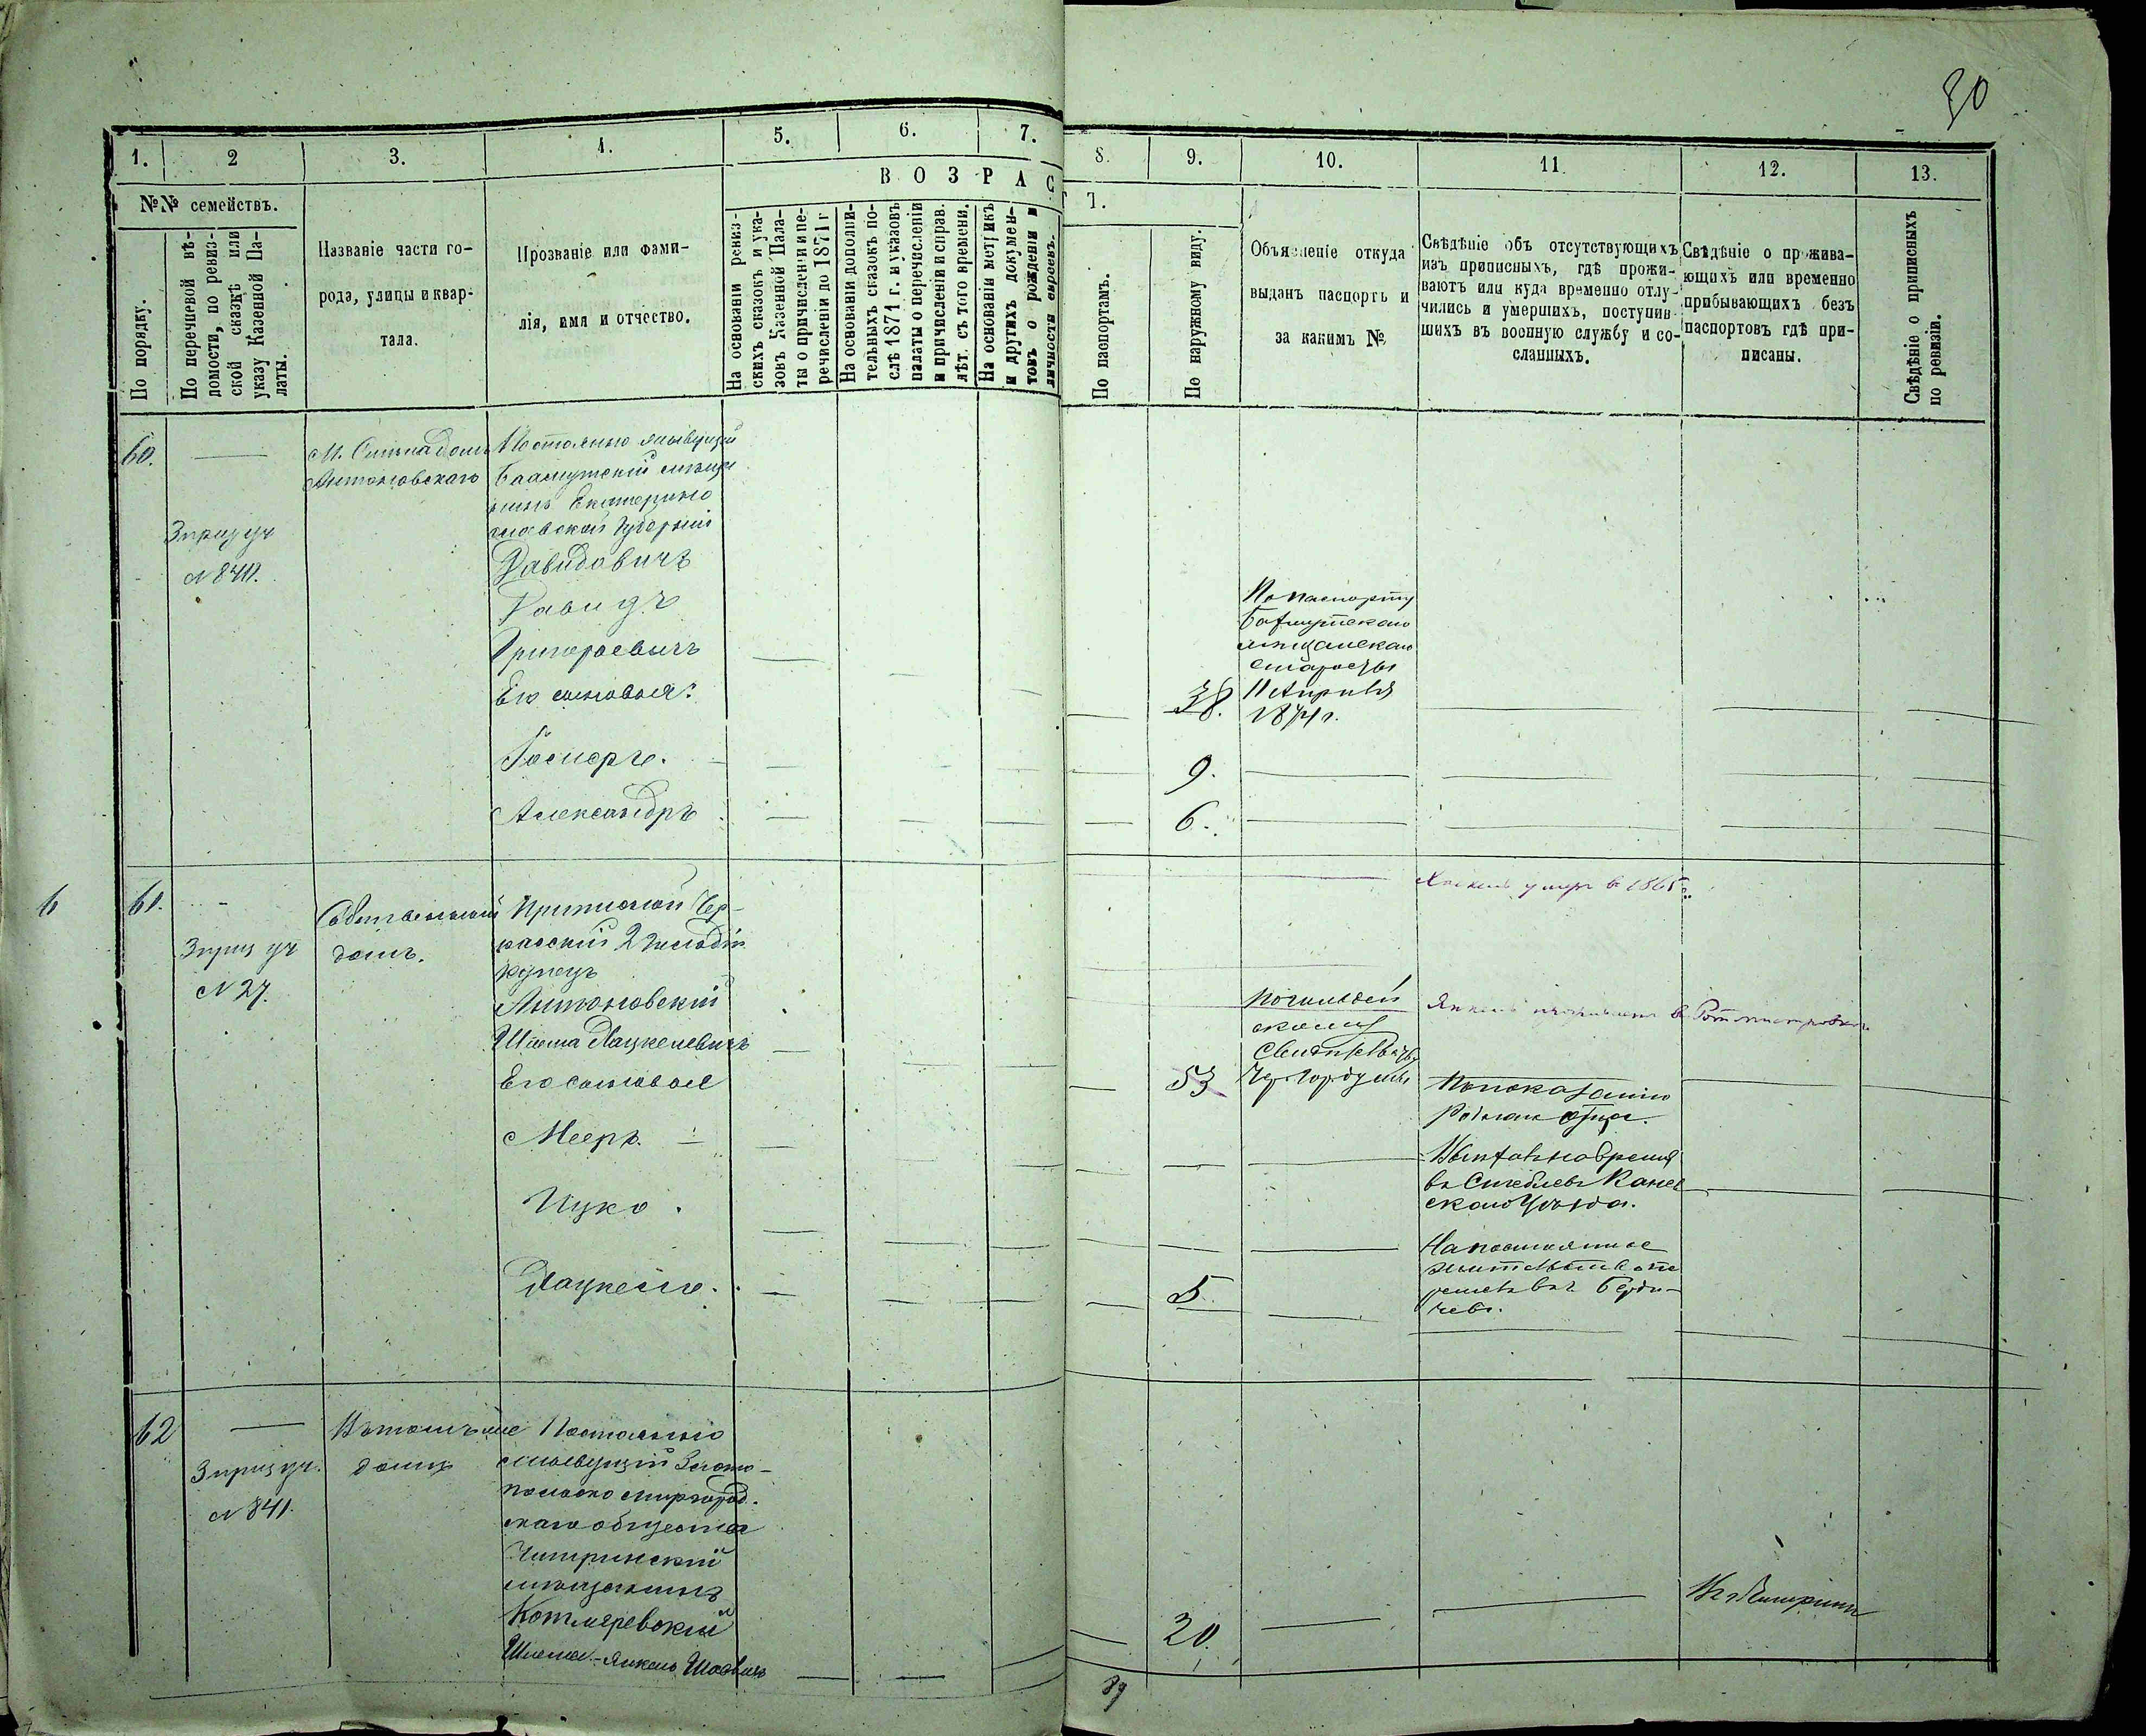 30
1.
2
3.
4.
5.
6.
7.
8.
9.
10.
11
12.
13.
№№ семействъ.
По порядку.
По перечневой вѣ-
домости, по ревиз-
ской сказкѣ или
указу Казенной Па-
латы.
Названіе части го-
рода, улицы и квар-
тала.
Прозваніе или фами-
лія, имя и отчество.
ВОЗРАС
Т.
На основаніи ревиз-
скихъ сказокъ и ука-
зовъ Казенной Пала-
ты о причисленіи и пе-
речисленіи до 1871 г
На основаніи дополни-
тельныхъ сказокъ по-
слѣ 1871 г. и указовъ
палаты о перечисленіи
и причисленіи и справ.
лѣт. съ того времени.
На основаніи метрикъ
и другихъ докумен-
товъ о рожденіи и
личности евреевъ.
По паспортамъ.
По наружному виду.
Объясненіе откуда
выданъ паспортъ и
за какимъ №
Свѣдѣніе объ отсутствующихъ
изъ приписныхъ, гдѣ прожи-
ваютъ или куда временно отлу-
чились и умершихъ, поступив-
шихъ въ военную службу и со-
сланныхъ.
Свѣдѣніе о прожива-
ющихъ или временно
прибывающихъ безъ
паспортовъ гдѣ при-
писаны.
Свѣдѣніе о приписныхъ
по ревизіи.
60.
М. Смѣла домъ
Антоновскаго
3 приз уч
Постоянно живущій
Бахмутскій мѣща
нинъ Екатерино
славской Губерніи
Давидовичъ
Давидъ
Григорьевичъ
Его сыновья:
38.
По паспорту
Бахмутскаго
мѣщанскаго
старосты
11 Апрѣля
1874 г.
9.
Александръ
6.
6
61.
3 приз уч
N 27.
Собственный
домъ.
Приписной Чер-
касскій 2 гильдіи
купецъ
Антоновскій
Шлема Хацкелевичъ
Его сыновья
53
Хаскель умеръ в 1865 г.
По гильдей
скому
свидѣтельству
Янкель проживаетъ в Ротмистровкѣ
По показанію
отца.
Мееръ.
время
въ Стеблевъ Канев
скаго Уѣзда.
Ицко.
На постоянное
жительство
въ г. Берди-
чевъ.
Хацкель.
5
62
3 приз уч.
N 841.
Въ томъ же
домѣ
Постоянно
живущій Злато-
польско миргород.
скаго общества
Чигиринскій
мѣщанинъ
Котляревскій
Шлема-Янкель
20.
Въ Чигиринѣ
89